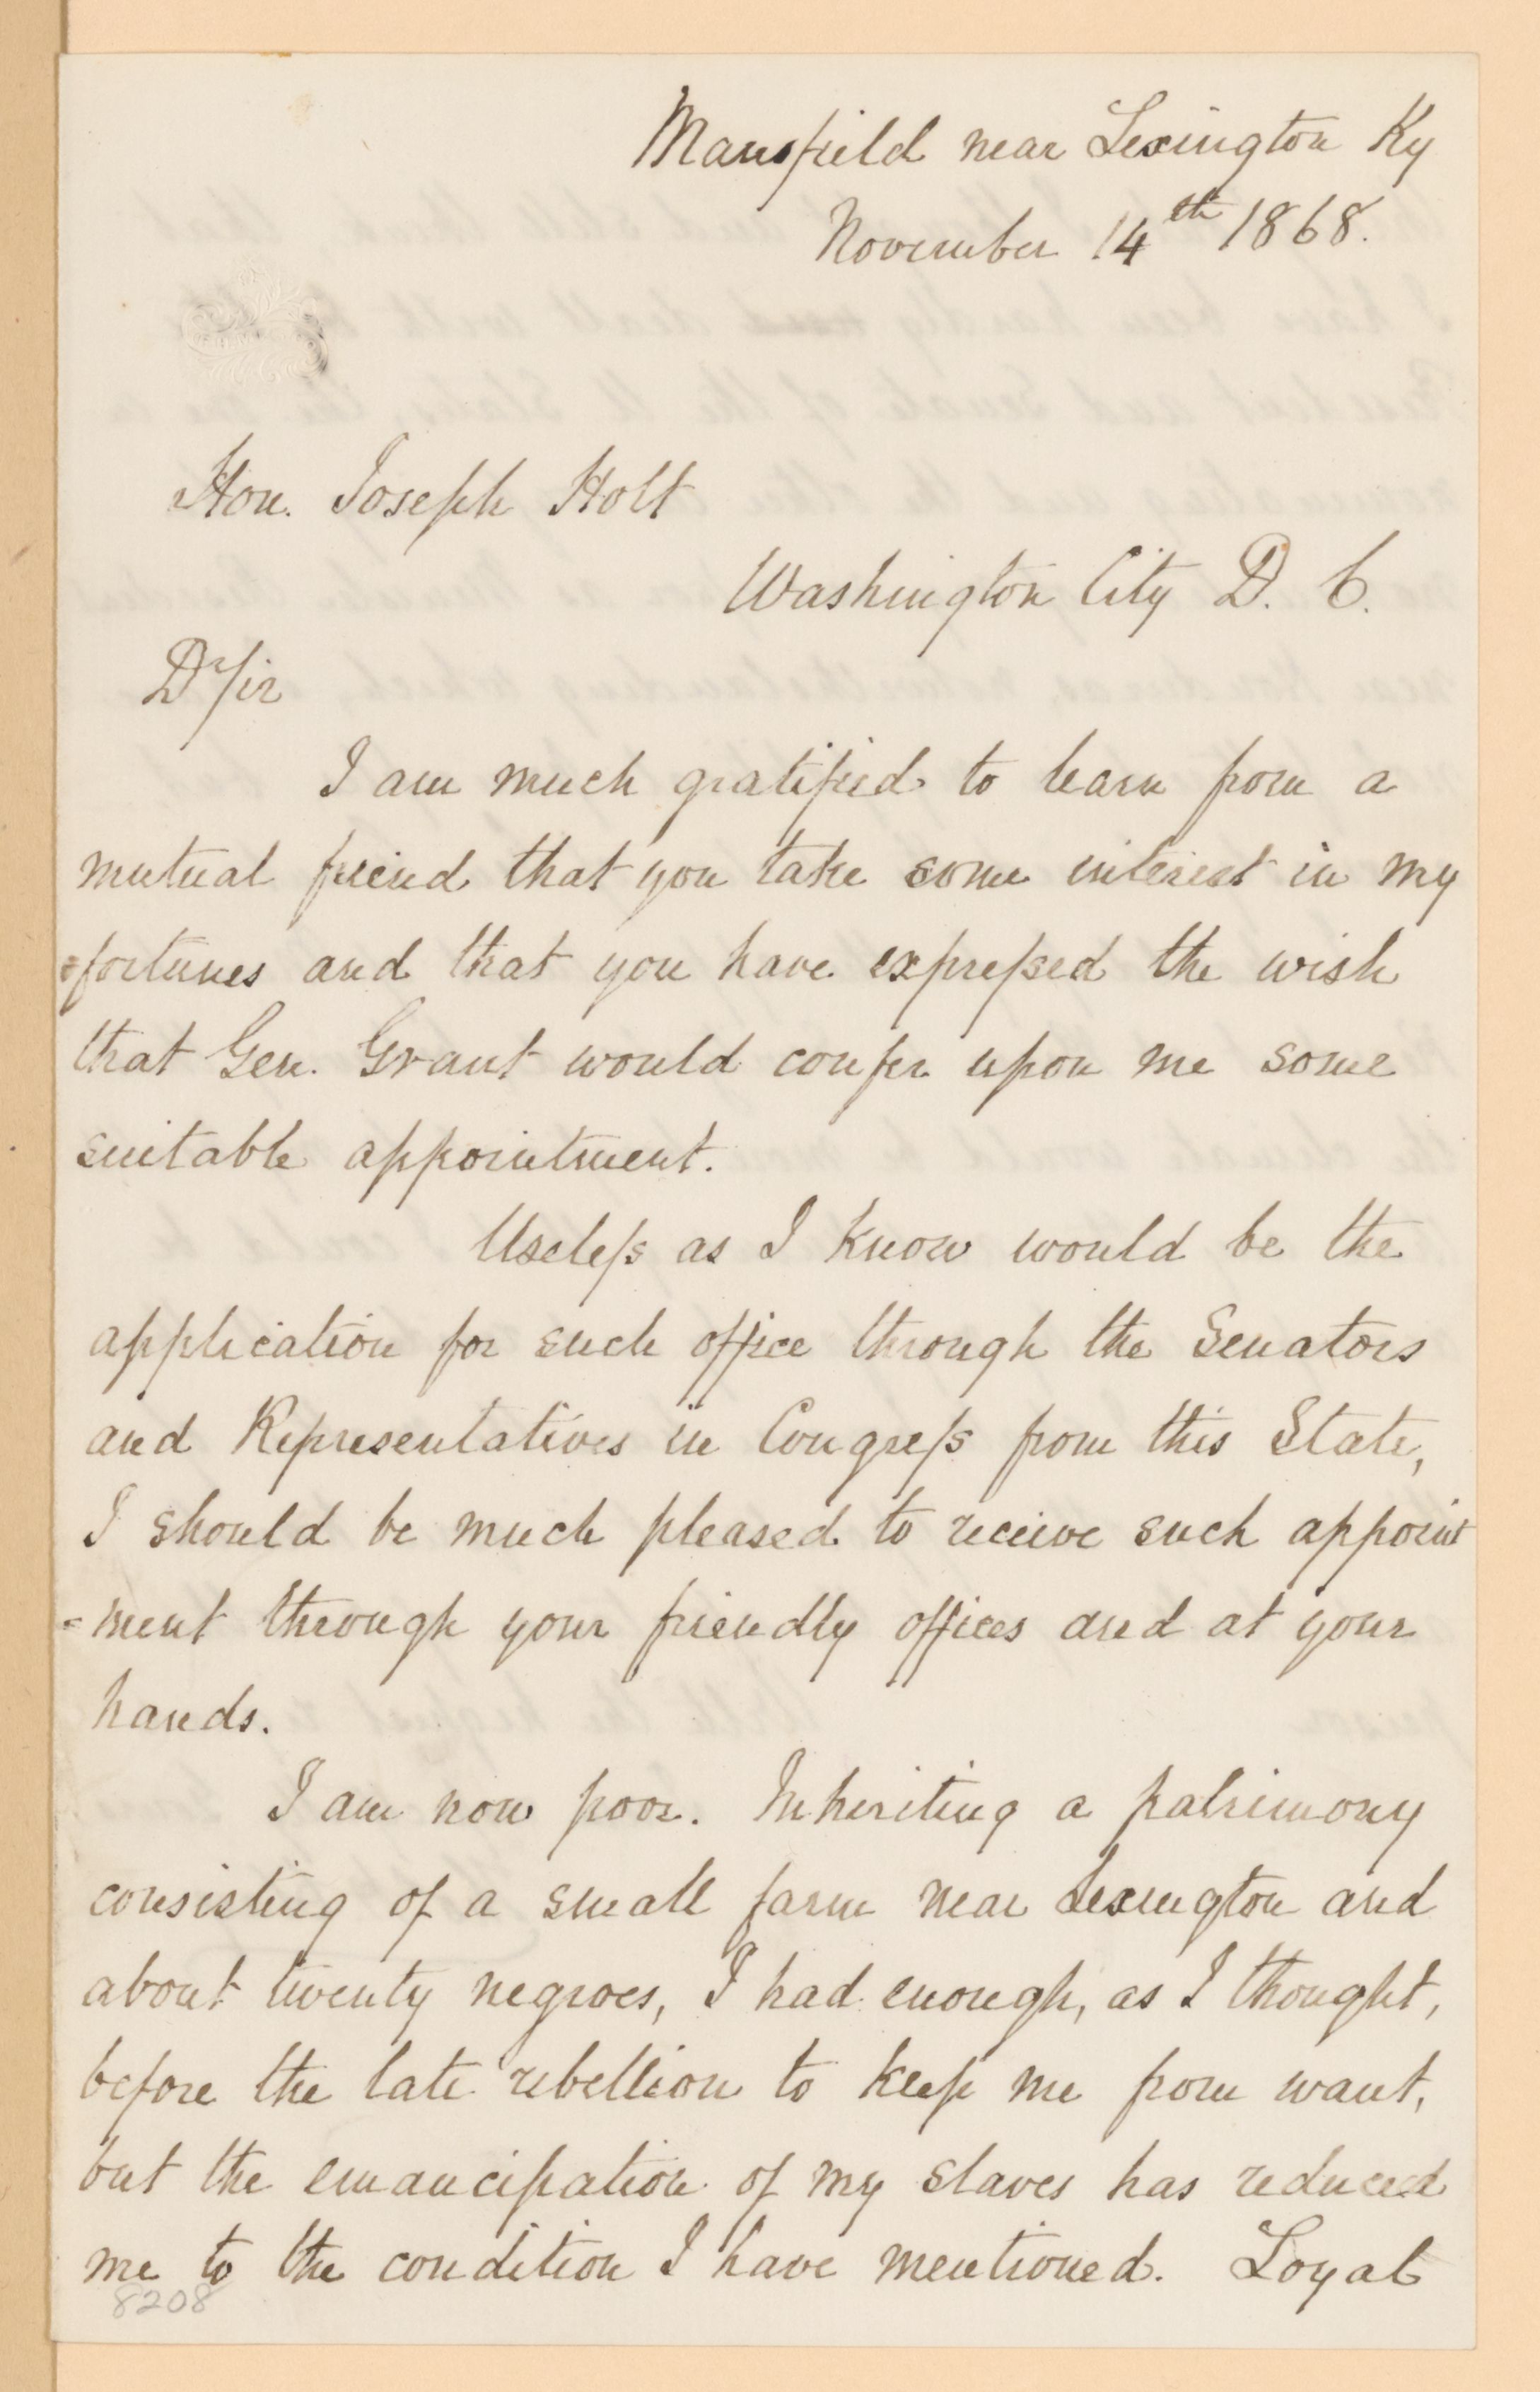 Mansfield near Lexington Ky
November 14th 1868.
Hon. Joseph Holt
Washington City D. C.
Dr Sir
I am much gratified to learn from a
mutual friend that you take some interest in my
fortunes and that you have expressed the wish
that Gen. Grant would confer upon me some
suitable appointment.
Useless as I know would be the
application for such office through the Senators
and Representatives in Congress from this State,
I should be much pleased to receive such appoint
-ment through your friendly offices and at your
hands.
I am now poor. Inheriting a patrimony
consisting of a small farm near Lexington and
about twenty negroes, I had enough, as I thought,
before the late rebellion to keep me from want,
but the emancipation of my slaves has reduced
me to the condition I have mentioned. Loyal
8208